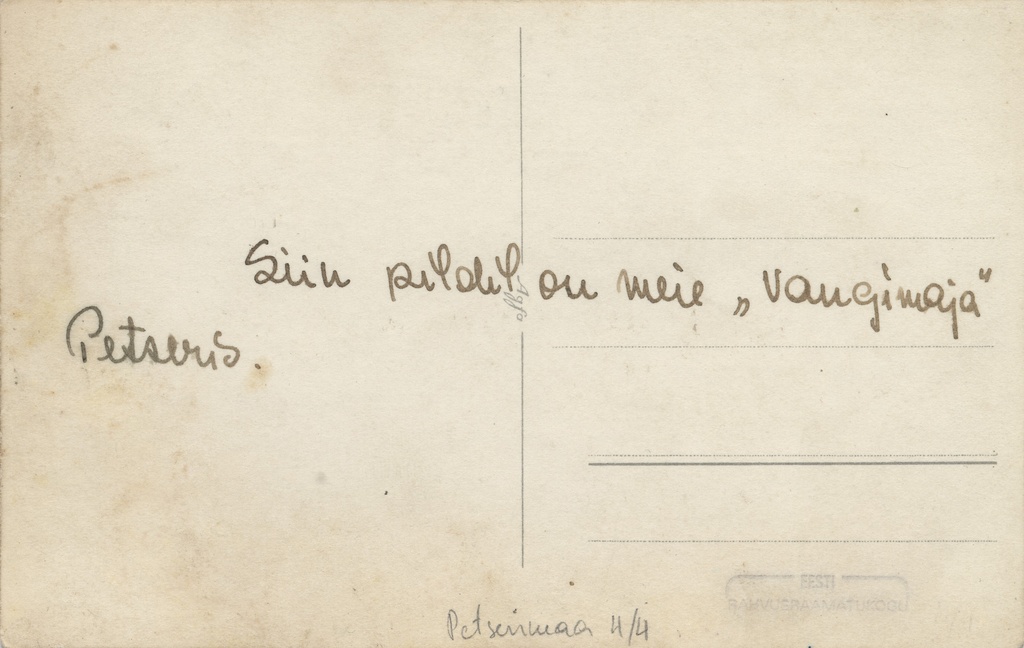 Siin pildil on meie „Vangimaja"
Petseris.
Agfa
Petserimaa 4/4
EESTI
RAHVUSRAAMATUKOGU